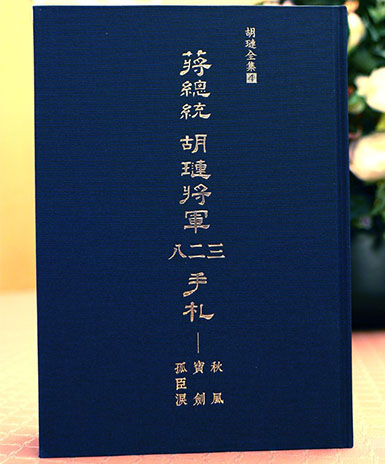 胡璉全集4
蔣總統 胡璉將軍
八二三
手札
秋風
寶劍
孤臣淚